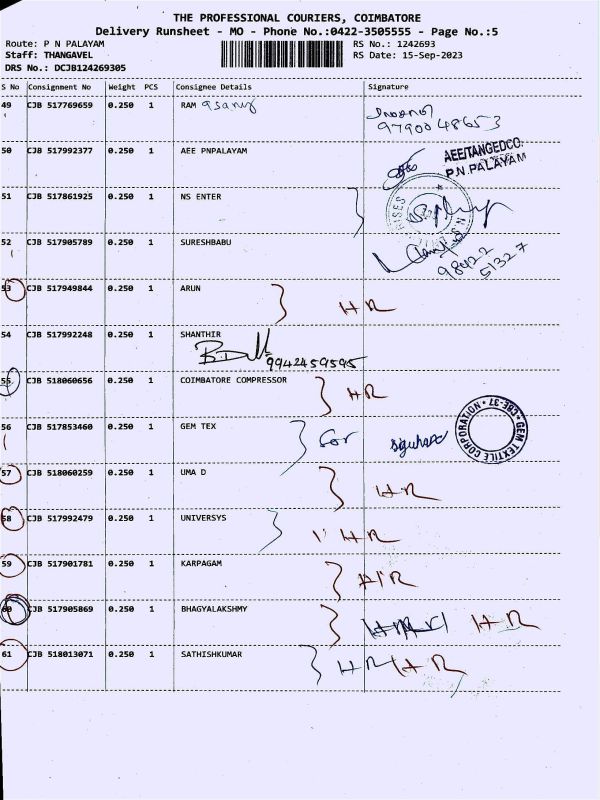 THE PROFESSIONAL COURIERS, COIMBATORE
Delivery Runsheet - MO - Phone No.:0422-3505555 - Page No.:5
Route: P N PALAYAM RS No.: 1242693
Staff: THANGAVEL RS Date: 15-Sep-2023
DRS No.: DCJB124269305
S No Consignment No Weight PCS Consignee Details Signature
49 CJB 517769659 0.250 1 RAM
9790048653
50 CJB 517992377 0.250 1 AEE PNPALAYAM
AEE/TANGEDCO.
P.N.PALAYAM
51 CJB 517861925 0.250 1 NS ENTER
52 CJB 517905789 0.250 1 SURESHBABU
98422
51327
53 CJB 517949844 0.250 1 ARUN HR
54 CJB 517992248 0.250 1 SHANTHIR
9942459595
55 CJB 518060656 0.250 1 COIMBATORE COMPRESSOR HR
56 CJB 517853460 0.250 1 GEM TEX for
GEM TEXTILE CORPORATION • CBE-37 •
57 CJB 518060259 0.250 1 UMA D HR
58 CJB 517992479 0.250 1 UNIVERSYS HR
59 CJB 517901781 0.250 1 KARPAGAM HR
60 CJB 517905869 0.250 1 BHAGYALAKSHMY HR
61 CJB 518013071 0.250 1 SATHISHKUMAR HR HR